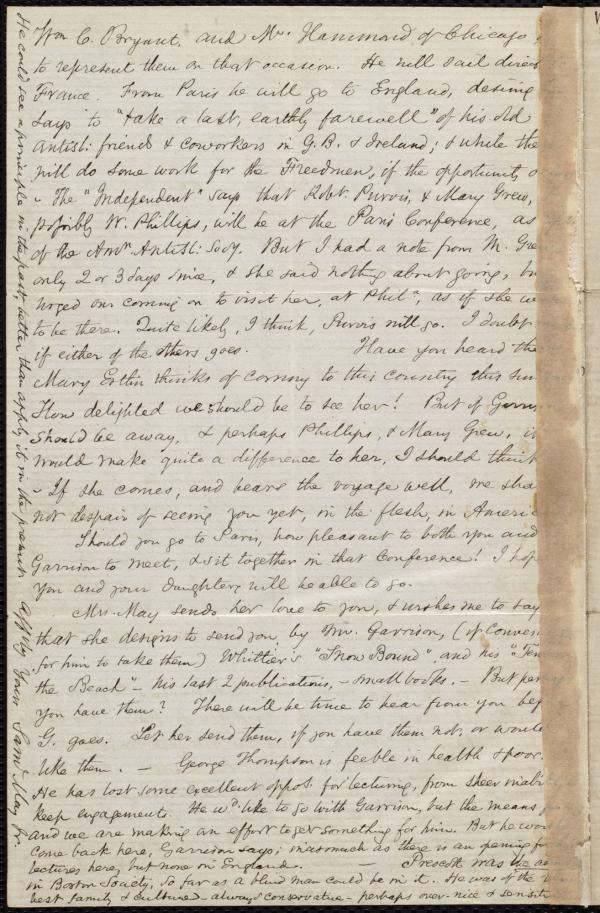 Wm C. Bryant, and Mr. Hammond of Chicago
to represent them on that occasion. He will sail direc
France. From Paris he will go to England, desiring
says to "take a last, earthly farewell" of his old
Antisl: friends & coworkers in G.B. & Ireland; & while the
will do some work for the Freedmen, if the opportunity o
The "Independent" says that Robt. Purvis, & Mary Grew,
possibly W. Phillips, will be at the Paris Conference, as
of the Amn. Antisl: Socy. But I had a note from M. Gre
only 2 or 3 days since, & she said nothing about going, bu
urged our coming on to visit her, at Phila, as if she w
to be there. Quite likely, I think, Purvis will go. I doubt
if either of the others goes. Have you heard tha
Mary Estlin thinks of coming to this country this sum
How delighted we should be to see her! But if Garris
should be away, & perhaps Phillips, & Mary Grew, it
would make quite a difference to her, I should think
If she comes, and bears the voyage well, we sha
not despair of seeing you yet, in the flesh, in Americ
Should you go to Paris, how pleasant to both you and
Garrison to meet, & sit together in that Conference! I hop
you and your daughters will be able to go.
Mrs. May sends her love to you, & wishes me to say
that she designs to send you, by Mr. Garrison, (if conven
for him to take them) Whittier's "Snow Bound", and his "Ten
the Beach" - his last 2 publications, - small books. - But per
you have them? There will be time to hear from you bef
G. goes. Let her send them, if you have them not, or would
like them. - George Thompson is feeble in health & poor.
He has lost some excellent oppos. for lecturing, from sheer inabil
keep engagements. He wd. like to go with Garrison, but the means
and we are making an effort to get something for him. But he wou
come back here, Garrison says; inasmuch as there is an opening for
lectures here, but none in England. - Prescott was
in Boston Society, so far as a blind man could be in it. He was of the
best family & culture - always conservative - perhaps over-nice & sensit
He could see a principle in the past, better than apply it in the present. Affly Yours Saml May Jr.